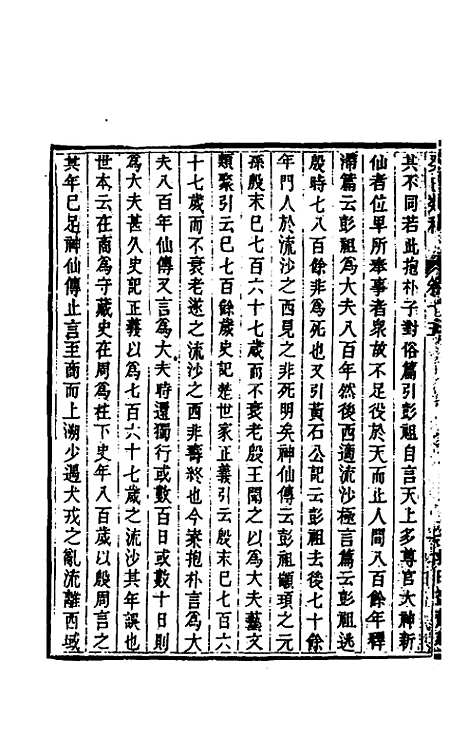 癸巳類稿
卷十五
其不同若此抱朴子對俗篇引彭祖自言天上多尊官大神新
仙者位卑所奉事者衆故不足役於天而止人間八百餘年釋
滯篇云彭祖爲大夫八百年然後西適流沙極言篇云彭祖逃
殷時七八百餘非爲死也又引黃石公記云彭祖去後七十餘
年門人於流沙之西見之非死明矣神仙傳云彭祖顓頊之元
孫殷末已七百六十七歲而不衰老殷王聞之以爲大夫藝文
類聚引云已七百餘歲史記楚世家正義引云殷末已七百六
十七歲而不衰老遂之流沙之西非壽終也今案抱朴言爲大
夫八百年仙傳又言爲大夫時還獨行或數百日或數十日則
爲大夫甚久史記正義以爲七百六十七歲之流沙其年誤也
世本云在商爲守藏史在周爲柱下史年八百歲以殷周言之
其年已足神仙傳止言至商而上溯少遇犬戎之亂流離西域